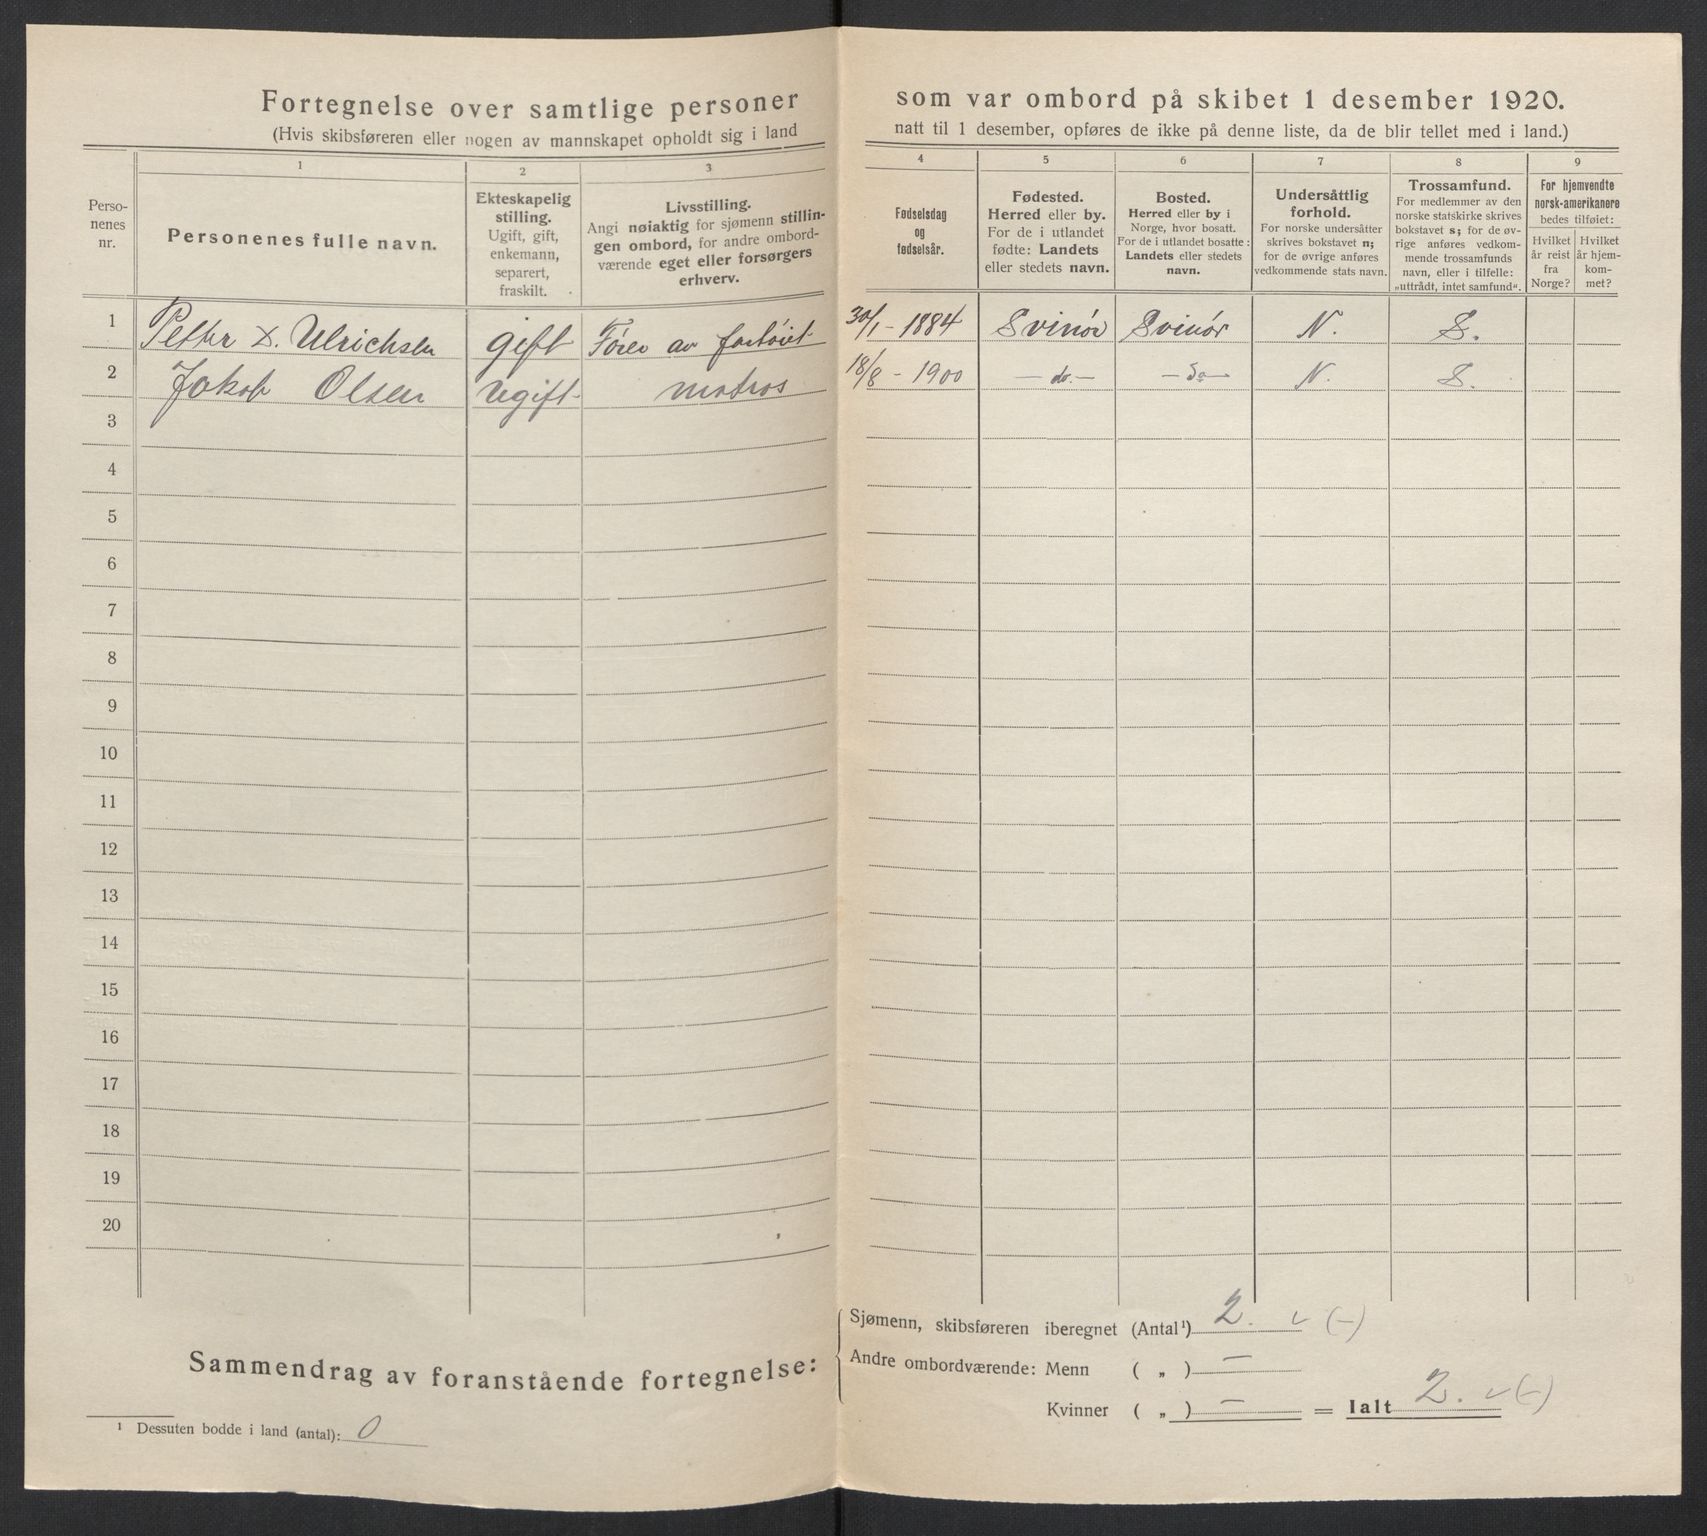 Fortegnelse over samtlige personer som var ombord på skibet 1 desember 1920.
(Hvis skibsføreren eller nogen av mannskapet opholdt sig i land natt til 1 desember, opføres de ikke på denne liste, da de blir tellet med i land.)
1 2 3 4 5 6 7 8 9
Perso-
nenes
nr.
Personenes fulle navn.
Ekteskapelig
stilling.
Ugift, gift,
enkemann,
separert,
fraskilt.
Livsstilling.
Angi nøiaktig for sjømenn stillin-
gen ombord, for andre ombord-
værende eget eller forsørgers
erhverv.
Fødselsdag
og
fødselsår.
Fødested.
Herred eller by.
For de i utlandet
fødte: Landets
eller stedets navn.
Bosted.
Herred eller by i
Norge, hvor bosatt.
For de i utlandet bosatte:
Landets eller stedets
navn.
Undersåttlig
forhold.
For norske undersåtter
skrives bokstavet n;
for de øvrige anføres
vedkommende stats navn.
Trossamfund.
For medlemmer av den
norske statskirke skrives
bokstavet s; for de øv-
rige anføres vedkom-
mende trossamfunds
navn, eller i tilfelle:
„uttrådt, intet samfund“.
For hjemvendte
norsk-amerikanere
bedes tilføiet:
Hvilket
år reist
fra
Norge?
Hvilket
år hjem-
kom-
met?
1 Petter D. Ulrichsen gift Fører av fartöiet 30/1 - 1884 Svinör Svinör N. S.
2 Jakob Olsen Ugift matros 18/8 - 1900 - do. - - do - N. S.
3
4
5
6
7
8
9
10
11
12
13
14
15
16
17
18
19
20
Sammendrag av foranstående fortegnelse:
Sjømenn, skibsføreren iberegnet (Antal¹) 2. v (-)
Andre ombordværende: Menn ( „ ) —
Kvinner ( „ ) — = Ialt 2. v (-)
¹ Dessuten bodde i land (antal): 0